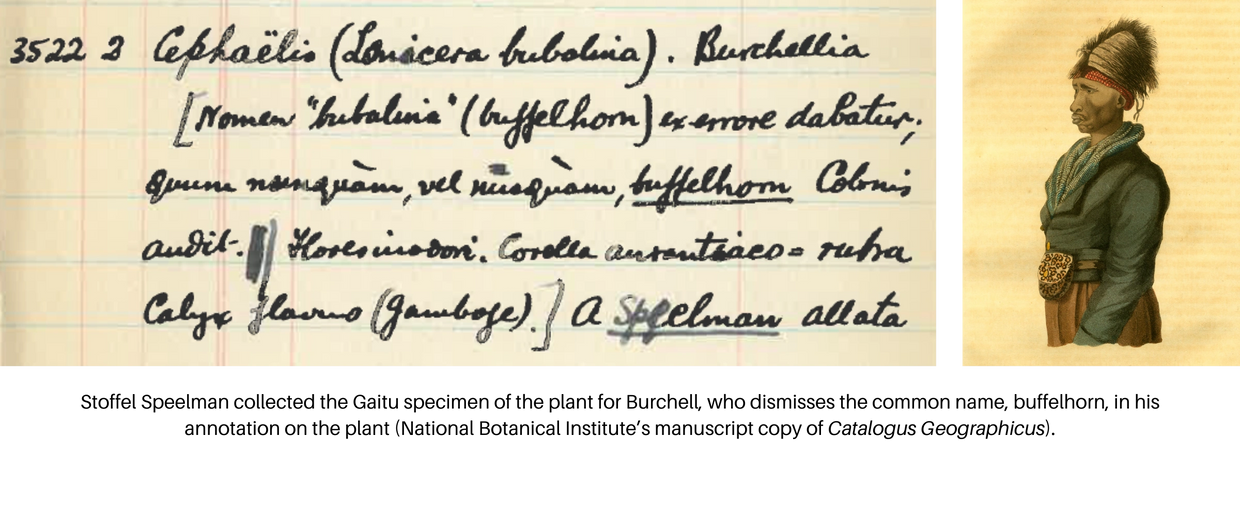 3522 2 Cephaëlis (Lonicera bubalina). Burchellia
[Nomen "bubalina" (buffelhorn) ex errore dabatur;
quum nunquàm, vel nusquàm, buffelhorn Colonis
audit. Flores inodori. Corolla aurantiaco = rubra
Calyx flavus (Gamboge).] A Speelman allata
Stoffel Speelman collected the Gaitu specimen of the plant for Burchell, who dismisses the common name, buffelhorn, in his
annotation on the plant (National Botanical Institute's manuscript copy of Catalogus Geographicus).